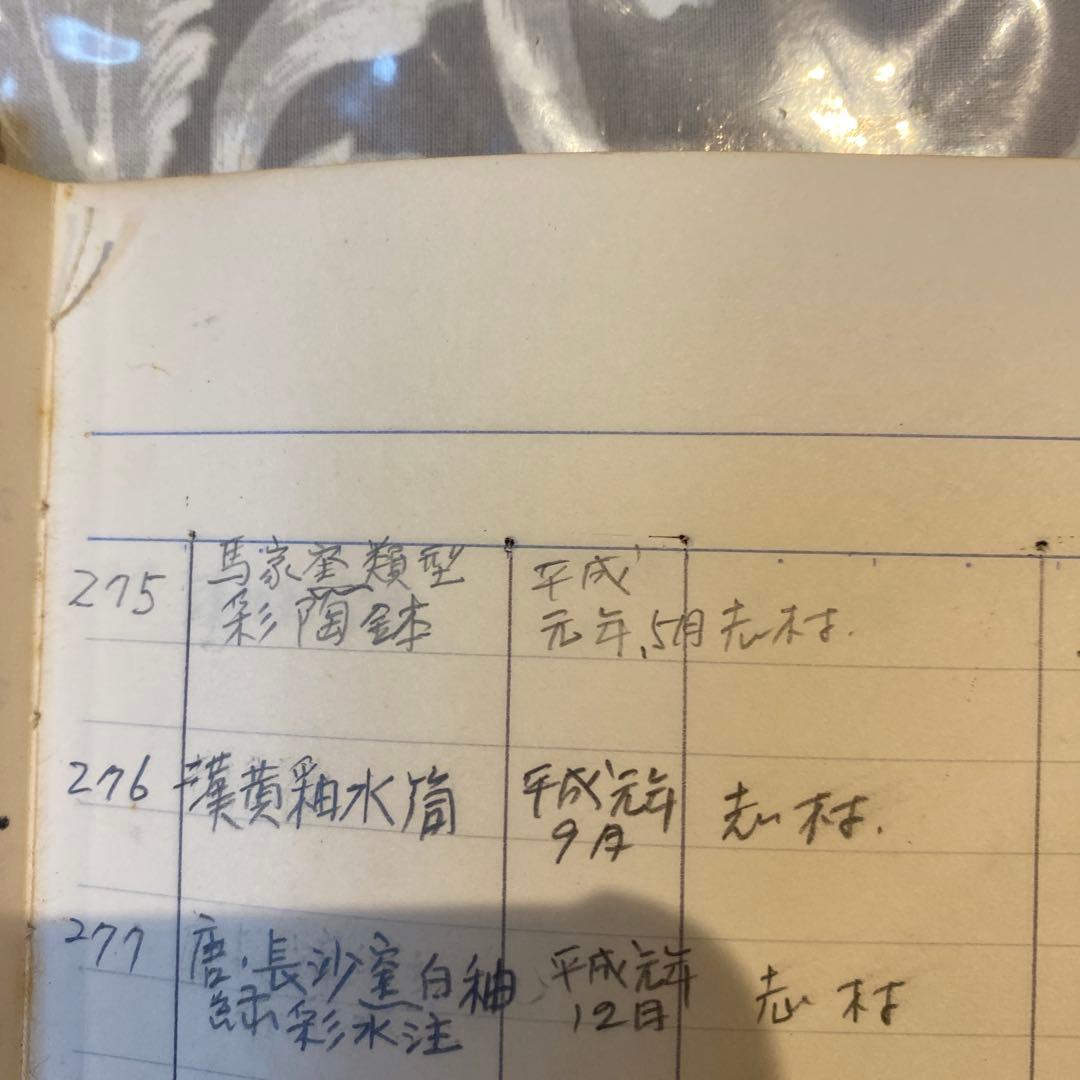 275 馬家窑類型 平成
彩陶鉢 元年.5月 志村.
276 漢黄釉水筒 平成元年 志村.
9月
277 唐.長沙窯白釉 平成元年 志村
緑彩水注 12月